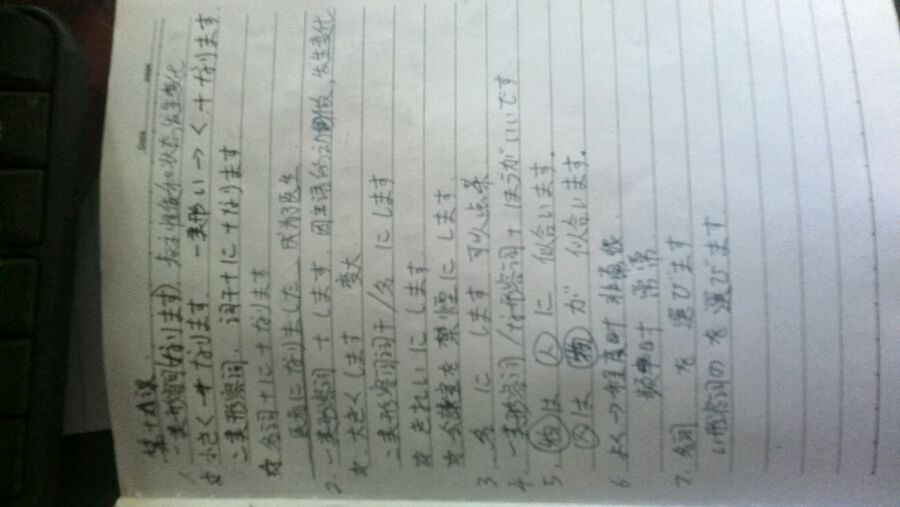 Date
第十九课
1. 一类形容词(なります) 表示性质和状态发生变化
☆ 小さく + なります 一类形い→く + なります
二类形容词 词干+に+なります
☆ 名词+に+なります
医者になりました 成为了医生
2. 一类形容词 + します 因主语的动作, 发生变化
☆ 大きくします 变大
二类形容词词干/名 にします
☆ きれいに します
☆ 会議室を禁煙に します
3 名 に します 可以点菜
4. 一类形容词/な形容词+ほうがいいです
5. 物は 人に 似合います.
人は 物が 似合います.
6 よく→程度时 非常很
频率时 常常
7. 名词 を 選びます
い形容词のを選びます